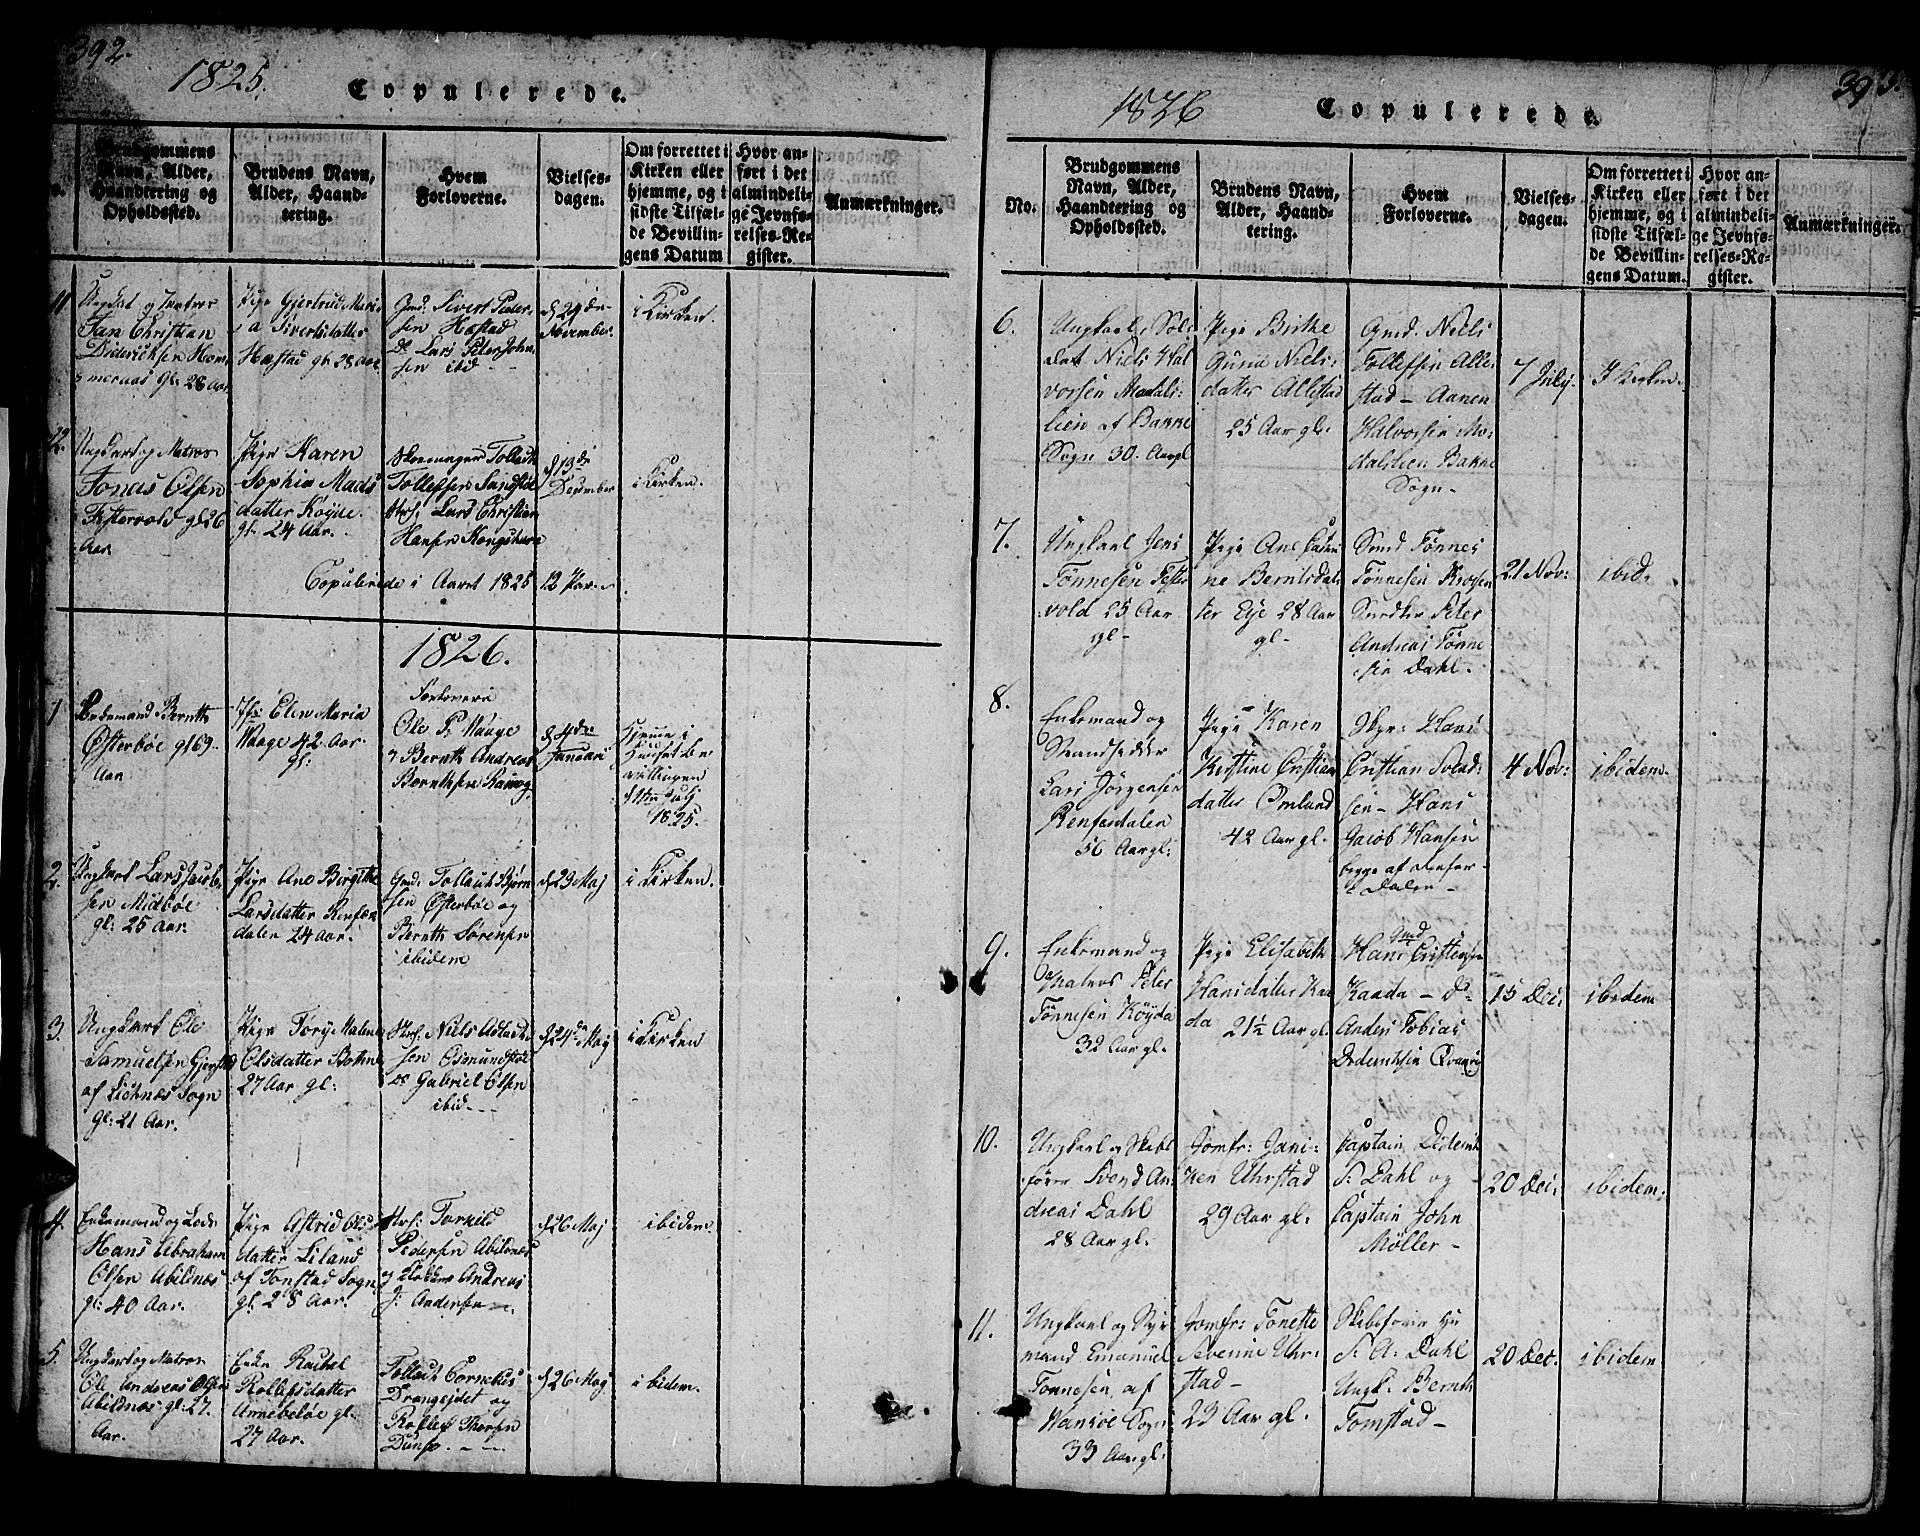 392.
1825.
Copulerede.
Brudgommens Navn, Alder, Haandtering og Opholdssted.
Brudens Navn, Alder, Haandtering.
Hvem Forloverne.
Vielsesdagen.
Om forrettet i Kirken eller hjemme, og i sidste Tilfælde Bevillingens Datum
Hvor anført i det almindelige Jevnførelses-Register.
Anmærkninger.
11
Ungkarl og Matros
Jan Christian
Diderichsen Hom
mernæs gl: 28 aar
Pige Gjertrud Mari
a Sivertsdatter
Hæstad gl. 28 aar
Gmd. Sivert Peder
sen Hæstad
do Lars Peter John
sen ibid
d 24de
November
i Kirken.
12.
Ungkarl og Matros
Jonas Olsen
Festervold gl 26
Aar
Pige Karen
Sophia Mads
datter Köyne
gl. 24 Aar.
Tollach
Tollefsen Sundstöe
Lars Christian
Hansen
d 13de
December
i Kirken.
Copulerede i Aaret 1825 12 Par.
1826.
1
Enkemand Bernth
Østerbøe gl 69
Aar
Elen Maria
Waage 42 Aar.
gl:
Forlovere
Ole P. Waage
Bernth Andreas
Berntsen
d 4de
Januari
Hjemme i
Huset
1825.
2.
Ungkarl Lars Jacob
sen Midböe
gl: 25 aar.
Pige Ane Birgithe
Larsdatter Renfæn
dalen 24 Aar.
Gmd. Tollach Bjørn
sen Østerböe og
Bernth Sørensen
ibidem
d 23 Maj
i Kirken.
3.
Ungkarl Ole
Samuelsen Gjerstad
af Liknæs Sogn
gl: 21 Aar.
Pige Torje Malene
Olsdatter Bothne
27 Aar gl:
Niels Adlach
sen Osmundstøe
do Gabriel Olsen
ibid
d 24de Maj
i Kirken
4.
Enkemand og Lods
Hans Abraham
Olsen Abilnæs
gl: 40 Aar.
Pige Astrid Ols
datter Liland
af Tonstad Sogn
gl. 28 Aar.
Torkild
Pedersen Abilnæs
og Andreas
J: Andersen
d 26 Maj
ibidem
5.
Ungkarl og Matros
Ole Andreas Olsen
Abilnæs gl: 27.
Aar.
Enke Rachel
Rollefsdatter
Annebeløe gl:
27 Aar.
Tollach Cornelius
Drangeidet og
Rollef Thorsen
d 26 Maj
ibidem.
393.
1826
Copulerede.
No.
Brudgommens Navn, Alder, Haandtering og Opholdssted.
Brudens Navn, Alder, Haandtering.
Hvem Forloverne.
Vielsesdagen.
Om forrettet i Kirken eller hjemme, og i sidste Tilfælde Bevillingens Datum.
Hvor anført i det almindelige Jevnførelses-Register.
Anmærkninger.
6.
Ungkarl, Sol
dat Niels Hal
vorsen Modals
lien af Bakke
Sogn 30. Aar gl
Pige Birthe
Guria Niels
datter Allestad
25 Aar gl.
Gmd. Niels
Tollefsen Alle
stad – Aanen
Halvorsen Mo
dalslien Bakke
Sogn –
7 July.
I Kirken.
7.
Ungkarl Jens
Tönnesen Fester
vold 25 Aar
gl –
Pige Ane
Berntsdat
ter Eje 28 Aar
gl –
Smed Tönnes
Tönnesen
Peter
Andreas Tönne
sen Dahl.
21 Nov:
ibid.
8.
Enkemand og
Strandsidder
Lars Jörgensen
Renfendalen
56 Aar gl:
Pige Karen
Kirstine Cristian
datter Omland
42 Aar gl.
Hans
Cristian Svend
sen – Hans
Jacob Hansen
begge af Renfen
dalen
4 Nov:
ibidem.
9.
Enkemand og
Matros Peter
Tönnesen Köyda
32 Aar gl.
Pige Elisabeth
Hansdatter Kaa
da 21½ Aar gl.
Gmd
Hans Cristensen
Kaada – do
Anders Tobias
15 Dec.
ibidem
10.
Ungkarl og Skibs
fører Svend An
dreas Dahl
28 Aar gl.
Jomfr: Jani
ken Uhrstad
29 Aar gl.
Captain Diderich
S: Dahl og
Captain John
Møller –
20 Dec.
ibidem.
11.
Ungkarl og Styr
mand Emanuel
Tönnesen, af
Wansöe Sogn
33 Aar gl:
Jomfr: Tonette
Severine Uhr
stad –
23 Aar gl.
Skibsfører
S: A: Dahl
Ungk. Bernth
Tomstad –
20 Dec.
ibidem